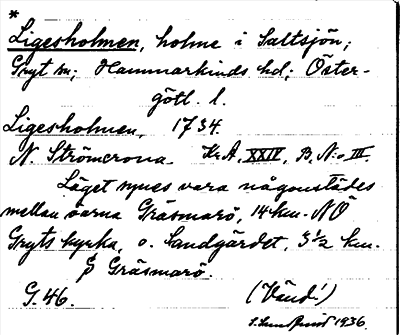 *
Ligesholmen, holme i Saltsjön;
Gryt sn; Hammarkinds hd; Öster-
götl. l.
Ligesholmen, 1734.
N. Strömcrona. Kr.A. XXIV, B, N:o III.
Läget synes vara någonstädes
mellan öarna Gräsmarö, 14 km. NÖ
Gryts kyrka, o. Landgärdet, 3 1/2 km.
S Gräsmarö.
G. 46. (Vänd!)
1936.